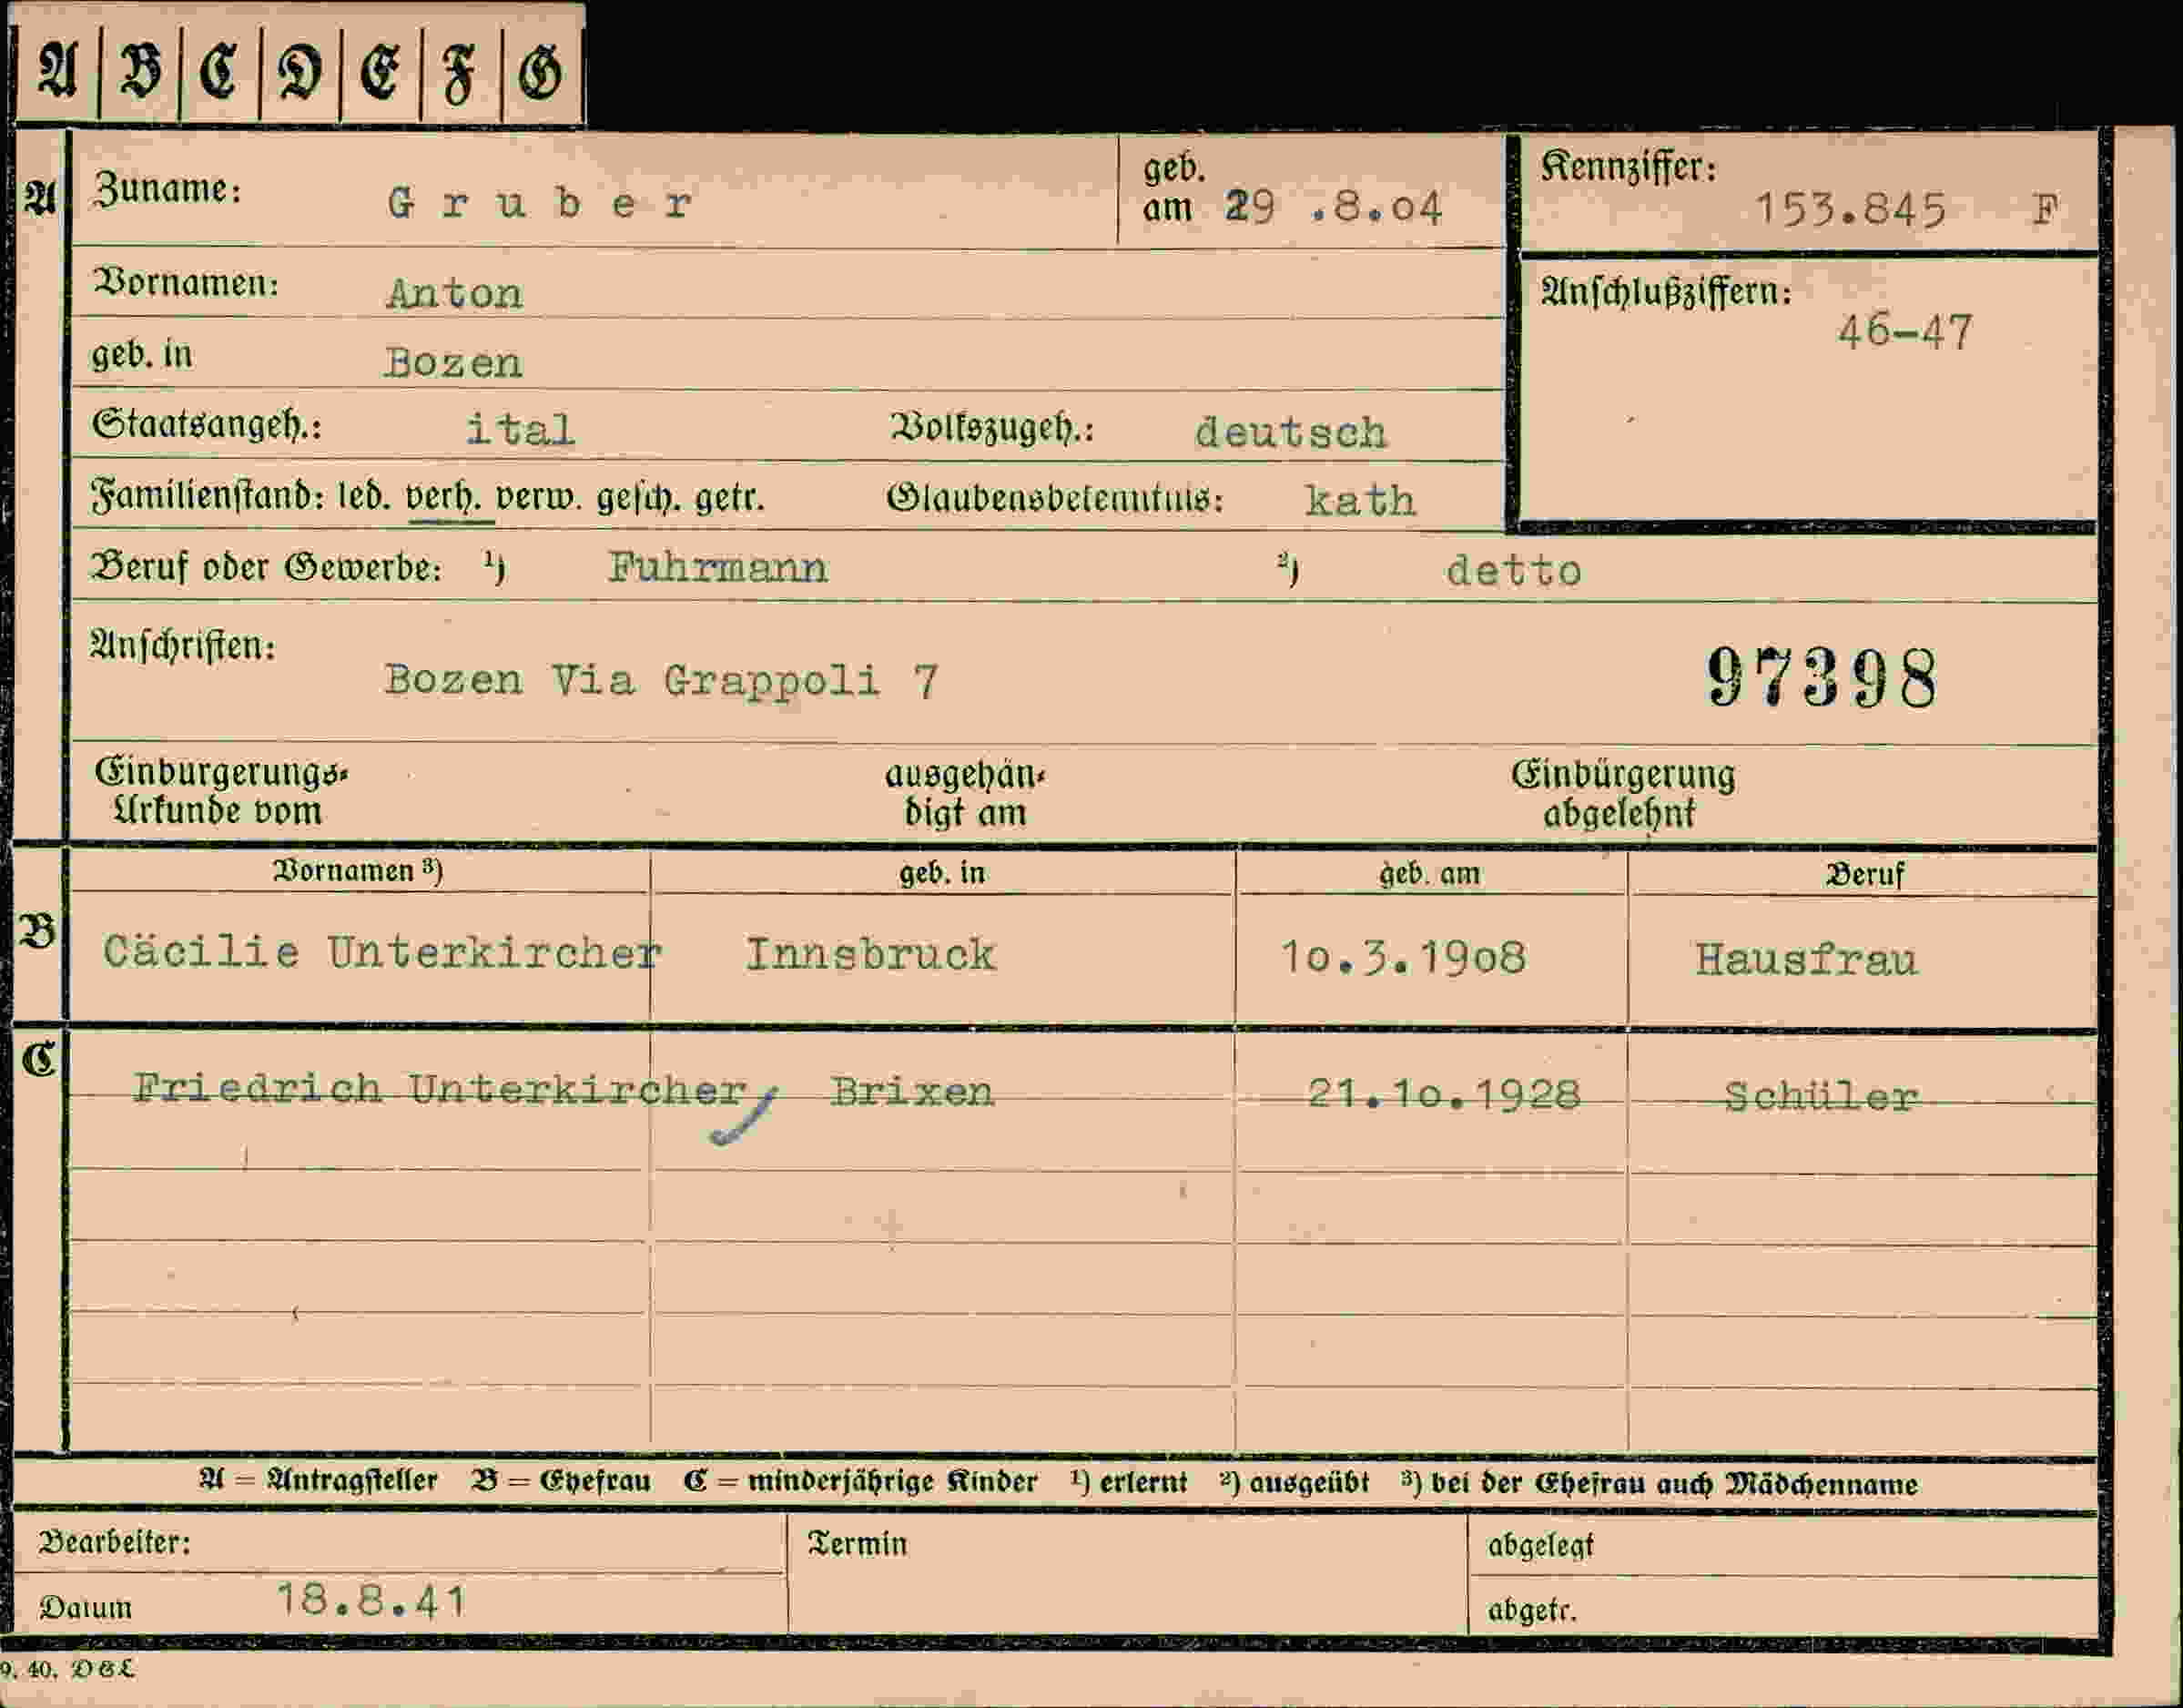 A B C D E F G
A Zuname: Gruber geb. am 29 .8.04 Kennziffer: 153.845 F
Vornamen: Anton Anschlußziffern: 46-47
geb. in Bozen
Staatsangeh.: ital Volkszugeh.: deutsch
Familienstand: led. verh. verw. gesch. getr. Glaubensbekenntnis: kath
Beruf oder Gewerbe: ¹) Fuhrmann ²) detto
Anschriften: Bozen Via Grappoli 7 97398
Einbürgerungs- ausgehän- Einbürgerung
Urkunde vom digt am abgelehnt
Vornamen ³) geb. in geb. am Beruf
B Cäcilie Unterkircher Innsbruck 10.3.1908 Hausfrau
C Friedrich Unterkircher, Brixen 21.10.1928 Schüler
A = Antragsteller B = Ehefrau C = minderjährige Kinder ¹) erlernt ²) ausgeübt ³) bei der Ehefrau auch Mädchenname
Bearbeiter: Termin abgelegt
Datum 18.8.41 abgetr.
9. 40. DGL